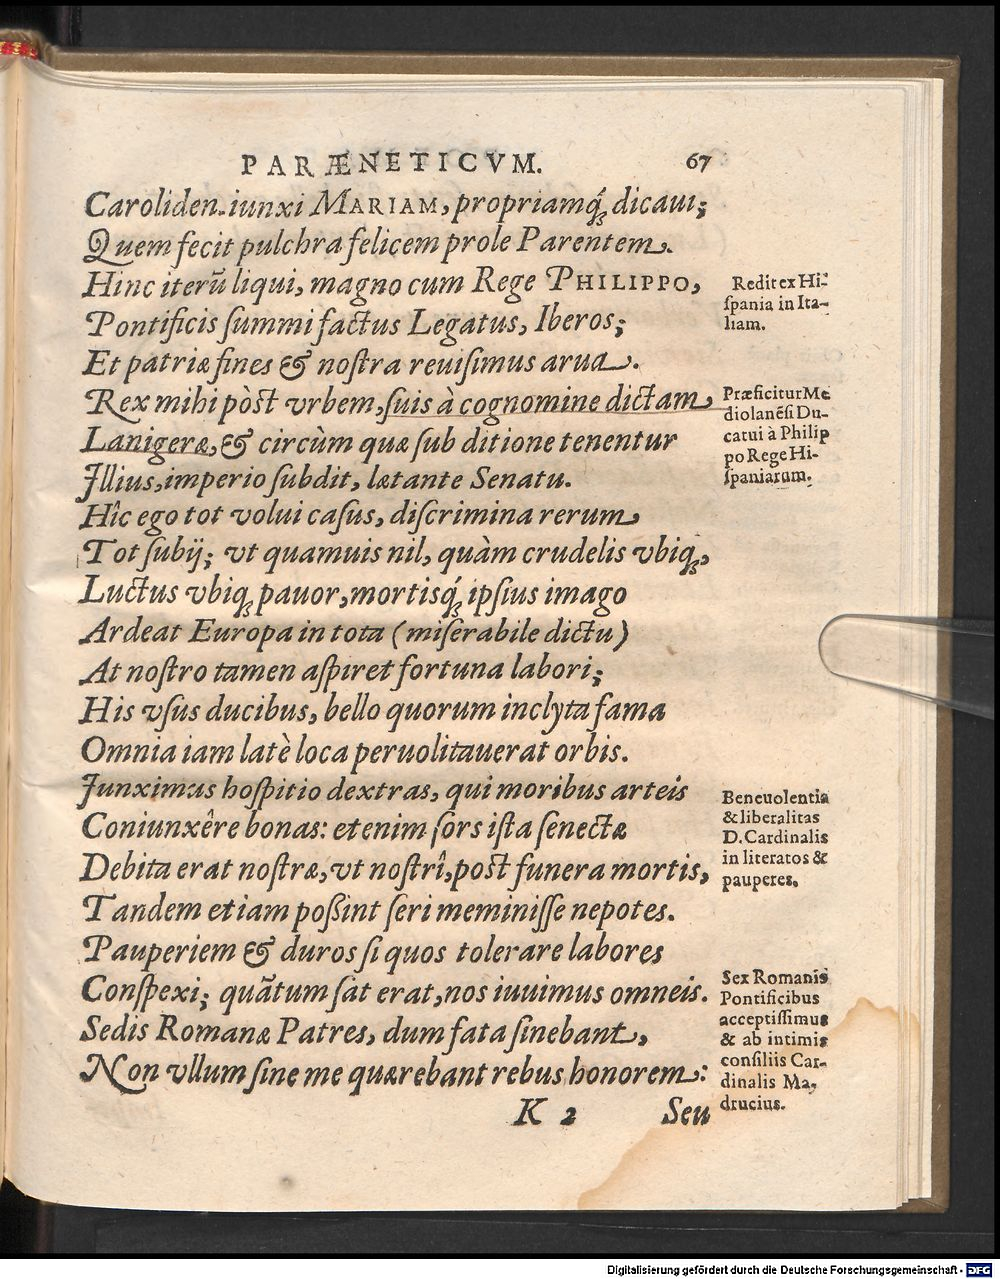 PARÆNETICVM. 67
Caroliden iunxi MARIAM, propriamq́; dicaui;
Quem fecit pulchra felicem prole Parentem.
Hinc iterũ liqui, magno cum Rege PHILIPPO,
Pontificis summi factus Legatus, Iberos;
Et patriæ fines & nostra reuisimus arua.
Rex mihi pòst vrbem, suis à cognomine dictam
Lanigeræ, & circùm quæ sub ditione tenentur
Illius, imperio subdit, lætante Senatu.
Hîc ego tot volui casus, discrimina rerum
Tot subij; vt quamuis nil, quàm crudelis vbiq;,
Luctus vbiq; pauor, mortisq́; ipsius imago
Ardeat Europa in tota (miserabile dictu)
At nostro tamen aspiret fortuna labori;
His vsus ducibus, bello quorum inclyta fama
Omnia iam latè loca peruolitauerat orbis.
Junximus hospitio dextras, qui moribus arteis
Coniunxêre bonas: etenim sors ista senectæ
Debita erat nostræ, vt nostrî, post funera mortis,
Tandem etiam possint seri meminisse nepotes.
Pauperiem & duros si quos tolerare labores
Conspexi; quãtum sat erat, nos iuuimus omneis.
Sedis Romanæ Patres, dum fata sinebant,
Non vllum sine me quærebant rebus honorem:
K 2 Seu
Redit ex Hi-
spania in Ita-
liam.
Præficitur Me
diolanẽsi Du-
catui à Philip
po Rege Hi-
spaniarum.
Beneuolentia
& liberalitas
D. Cardinalis
in literatos &
pauperes.
Sex Romanis
Pontificibus
acceptissimus
& ab intimis
consiliis Car-
dinalis Ma-
drucius.
Digitalisierung gefördert durch die Deutsche Forschungsgemeinschaft - DFG